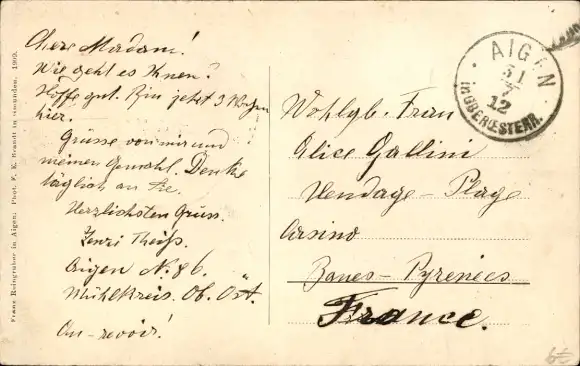 Chere Madam!
Wie geht es Ihnen?
Hoffe gut. Bin jetzt 3 Wochen
hier.
Grüsse von mir und
meinen Gemahl. Denke
täglich an Sie.
Herzlichsten Gruss.
Theiss.
Aigen N. 86.
Mühlkreis. Ob. Öst.
Au-revoir!
Wohlgb. Frau
Alice Gallini
Hendaye - Plage
Casino
Basses - Pyrenées
France.
AIGEN
31
7
12
IN OBEROESTERR.
Franz Raingruber in Aigen. Phot. F. E. Brandt in Gmunden. 1909.